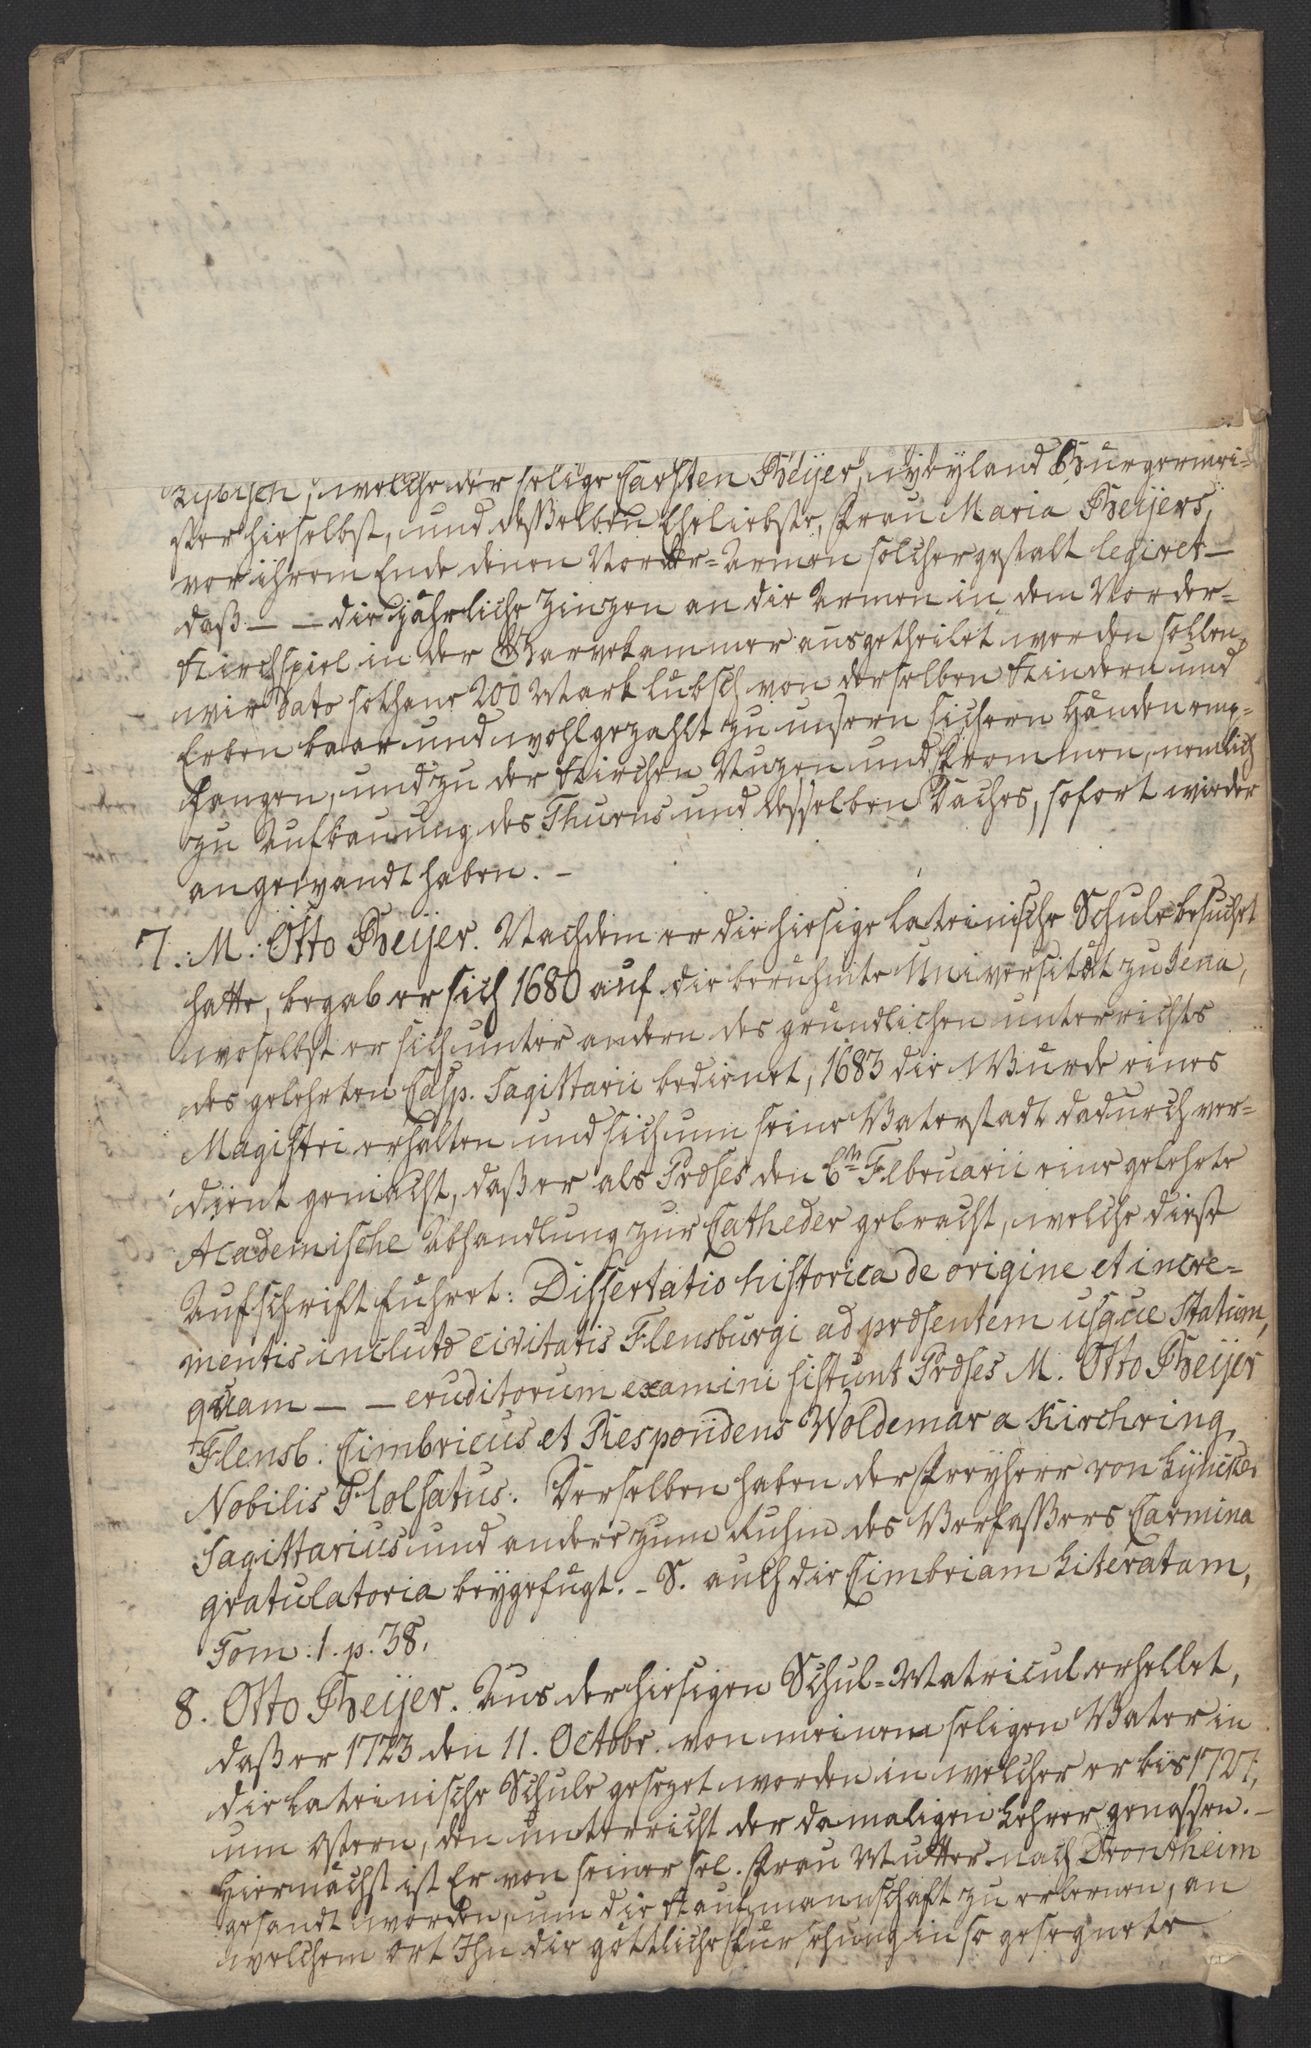 Lybisch, welche der selige Carsten Beijer, weyland Bürgermei-
ster hieselbst, und deßelben Eheliebste, Frau Maria Beijers,
vor ihrem Ende denen Norder-Armen solchergestalt legiret —
daß — — die jährliche Zinzen an die Armen in dem Norder-
Kirchspiel in der Garvekammer ausgetheilet werden sollen,
wir dato sothane 200 Mark lübsch von derselben Kindern und
Erben baar und wohlgezahlt zu unsern sichern Händen emp-
fangen, und zu der Kirchen Nuzen und Frommen, nemlich
zu Aufbauung des Thurns und desselben Daches, sofort wieder
angewandt haben. –
7. M: Otto Beijer. Nachdem er die hiesige lateinische Schule besucht
hatte, begab er sich 1680 auf die berühmte Universität zu Jena,
woselbst er sich unter andern des gründlichen unterrichts
des gelehrten Casp. Sagittarii bedienet, 1683 die Würde eines
Magistri erhalten und sich um seine Vaterstadt dadurch ver-
dient gemacht, daß er als Præses den 6ten Februarii eine gelehrte
Academische Abhandlung zur Catheder gebracht, welche diese
Aufschrift führet: Dissertatio historica de origine et incre-
mentis inclutæ civitatis Flensburgi ad præsentem usque Statum,
quam — — eruditorum examini sistunt Præses M. Otto Beijer
Flensb: Cimbricus et Respondens Woldemar a Kirchring,
Nobilis Holsatus. Derselben haben der Freyherr von Lyncker
Sagittarius und andere zum Ruhm des Verfaßers Carmina
gratulatoria beygefügt. – S. auch die Cimbriam Literatam,
Tom: 1. p. 38.
8. Otto Beijer. Aus der hiesigen Schul-Matricul erhellet,
daß er 1723 den 11. Octobr. von meinem seligen Vater in
die lateinische Schule gesezet worden in welcher er bis 1727,
um Ostern, den unterricht der damaligen Lehrer genossen. –
Hiernächst ist Er von seiner sel. Frau Mutter nach Drontheim
gesandt worden, um die Kaufmannschaft zu erlernen, an
welchem Ort Ihn die göttliche Fürsehung in so gesegnete